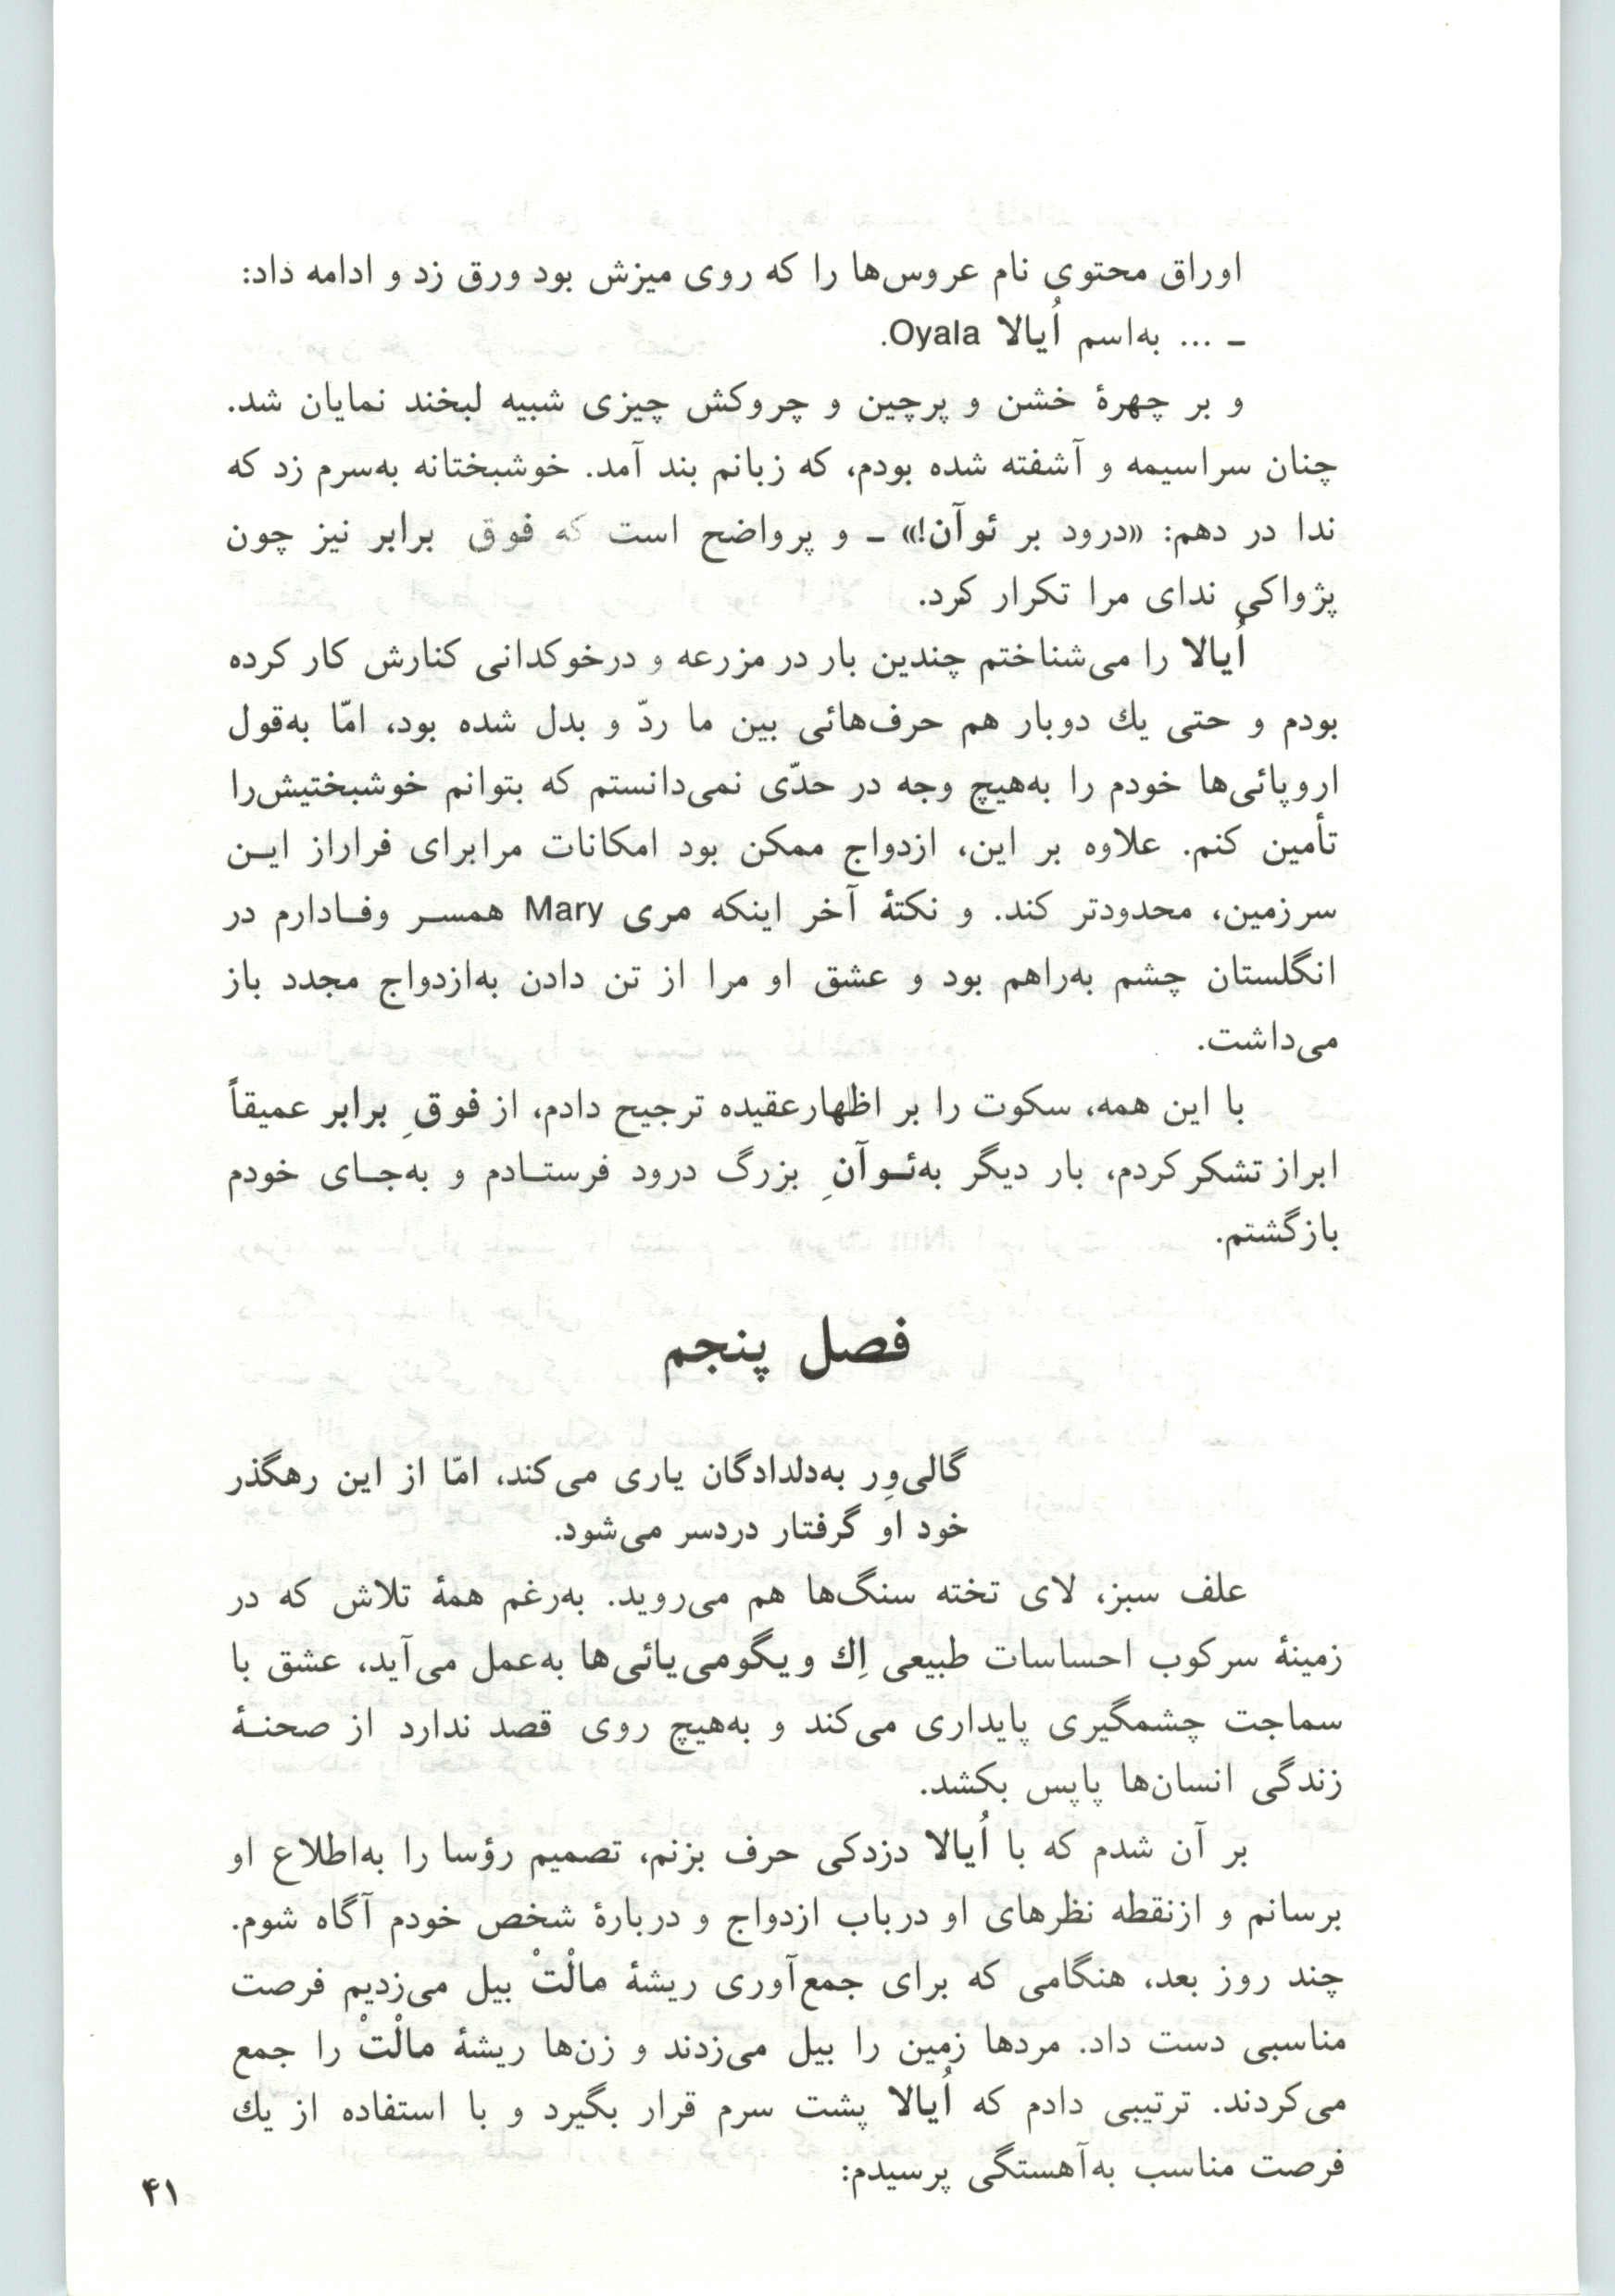 اوراق محتوی نام عروس‌ها را که روی میزش بود ورق زد و ادامه داد:
ـ ... به‌اسم اُیالا Oyala.
و بر چهرهٔ خشن و پرچین و چروکش چیزی شبیه لبخند نمایان شد.
چنان سراسیمه و آشفته شده بودم، که زبانم بند آمد. خوشبختانه به‌سرم زد که
ندا در دهم: «درود بر ئوآن!» ـ و پرواضح است که فوق برابر نیز چون
پژواکی ندای مرا تکرار کرد.
اُیالا را می‌شناختم چندین بار در مزرعه و درخوکدانی کنارش کار کرده
بودم و حتی یك دوبار هم حرف‌هائی بین ما ردّ و بدل شده بود، امّا به‌قول
اروپائی‌ها خودم را به‌هیچ وجه در حدّی نمی‌دانستم که بتوانم خوشبختیش‌را
تأمین کنم. علاوه بر این، ازدواج ممکن بود امکانات مرابرای فراراز ایـن
سرزمین، محدودتر کند. و نکتهٔ آخر اینکه مری Mary همسـر وفـادارم در
انگلستان چشم به‌راهم بود و عشق او مرا از تن دادن به‌ازدواج مجدد باز
می‌داشت.
با این همه، سکوت را بر اظهارعقیده ترجیح دادم، از فوقِ برابر عمیقاً
ابراز تشکر کردم، بار دیگر به‌ئـوآنِ بزرگ درود فرستـادم و به‌جـای خودم
بازگشتم.
فصل پنجم
گالی‌وِر به‌دلدادگان یاری می‌کند، امّا از این رهگذر
خود او گرفتار دردسر می‌شود.
علف سبز، لای تخته سنگ‌ها هم می‌روید. به‌رغم همهٔ تلاش که در
زمینهٔ سرکوب احساسات طبیعی اِك و یگومی‌یائی‌ها به‌عمل می‌آید، عشق با
سماجت چشمگیری پایداری می‌کند و به‌هیچ روی قصد ندارد از صحنـهٔ
زندگی انسان‌ها پاپس بکشد.
بر آن شدم که با اُیالا دزدکی حرف بزنم، تصمیم رؤسا را به‌اطلاع او
برسانم و ازنقطه نظرهای او درباب ازدواج و دربارهٔ شخص خودم آگاه شوم.
چند روز بعد، هنگامی که برای جمع‌آوری ریشهٔ مالْتْ بیل می‌زدیم فرصت
مناسبی دست داد. مردها زمین را بیل می‌زدند و زن‌ها ریشهٔ مالْتْ را جمع
می‌کردند. ترتیبی دادم که اُیالا پشت سرم قرار بگیرد و با استفاده از یك
فرصت مناسب به‌آهستگی پرسیدم:
۴۱